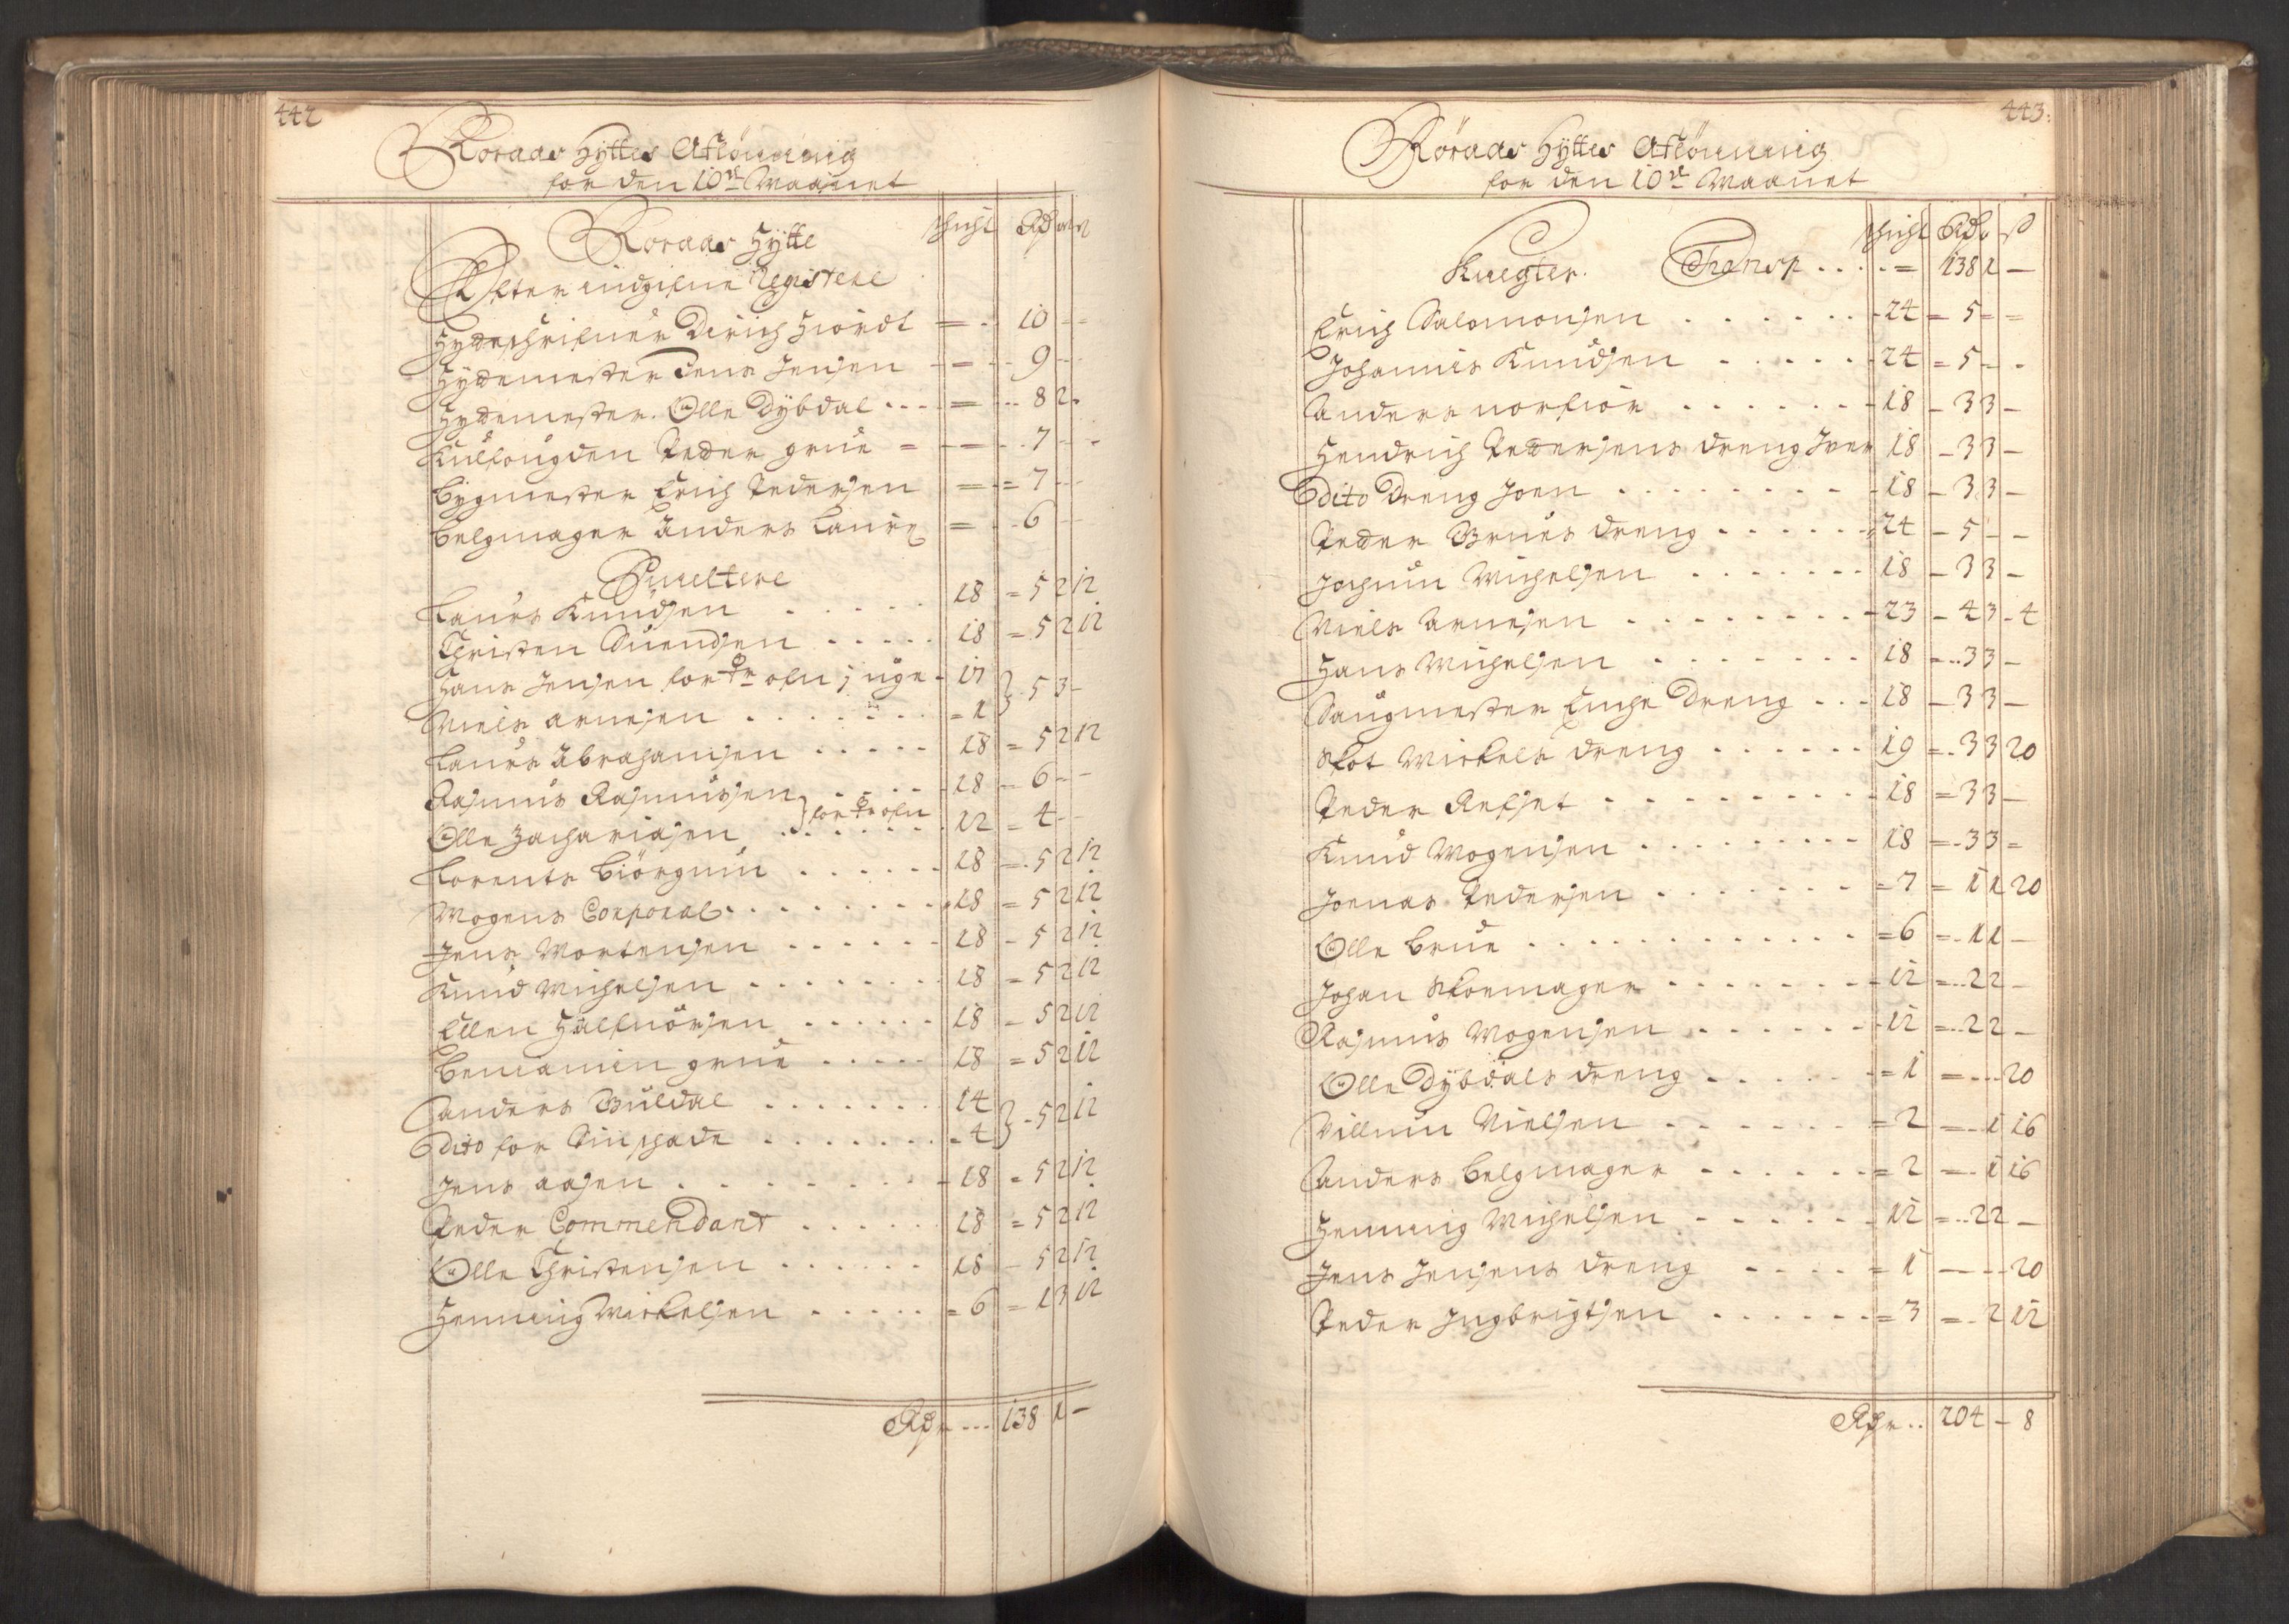 442
Röraas Hyttes Aflönning
for den 10de Maanet
Röraas Hytte schicht Rdr m s
Efter indgifne Registere
Hydeschrifuer Dirich Hiordt = 10 - -
Hydemester Jens Jensen - = - 9 - -
Hydemester Olle Dybdal .... = .. 8 2 -
Kulfougden Peder grue = - = - 7 - -
Bygmester Erich Pedersen = = 7 - -
Belgmager Anders Laurs = - 6 - -
Smeltere
Laurs Knudsen ..... 18 = 5 2 12
Christen Suendsen ..... 18 = 5 2 12
Hans Jensen for dr ofn j uge - 17 } 5 3 -
Niels Arnesen ...... = 1
Laurs Abrahamsen ..... 18 = 5 2 12
Rasmus Rasmussen .... 18 - 6 - -
Olle Zachariasen } for dr ofn 12 = 4 - -
Lorents Biörguin ...... 18 = 5 2 12
Mogens Corporal ....... 18 = 5 2 12
Jens Mortensen ...... 18 - 5 2 12
Knud Michelsen ....... 18 = 5 2 12
Ellen Halfuorsen ...... 18 - 5 2 12
Beniamin grue ..... 18 = 5 2 12
Anders Buldal ....... 14 } - 5 2 12
Dito for ....... - 4
Jens Aasen ....... 18 = 5 2 12
Peder Commendant ..... 18 = 5 2 12
Olle Christensen ...... 18 - 5 2 12
Henning Mickelsen ..... = 6 = 1 3 12
Rdr ... 138 1 -
443:
Röraas Hyttes Aflönning
for den 10de Maanet
schicht Rdr s
Knegter. Transp .... = 138 1 -
Erich Salomonsen ...... 24 = 5 = =
Johannes Knudsen ..... 24 = 5 - -
Anders norfiör ...... 18 - 3 3 -
Hendrich Pedersens dreng Iver 18 - 3 3 -
Dito Dreng Joen ........ 18 - 3 3 -
Peder Brues dreng ..... 24 - 5 - -
Jochum Michelsen ...... 18 - 3 3 -
Niels Arnesen ........ 23 - 4 3 - 4
Hans Michelsen ....... 18 = .. 3 3 -
Saugmester Enche Dreng ... 18 - 3 3 -
Skot Mickels dreng ...... 19 = . 3 3 20
Peder Refset ......... 18 = 3 3 -
Knud Mogensen ........ 18 = - 3 3 =
Jonas Pedersen ....... = 7 = 1 1 20
Olle Brue ............ = 6 = . 1 1 -
Johan Skomager ....... 12 = .. 2 2 -
Rasmus Mogensen ...... 12 = .. 2 2 -
Olle Dybdals dreng ..... = 1 = ... 20
Villum Nielsen ...... = 2 = - 1 16
Anders Belgmager ...... = 2 = - 1 16
Henning Michelsen ...... 12 = .. 2 2 -
Jens Jensens dreng .... = 1 - - .. 20
Peder Ingbrigtsen ...... = 3 = . 2 12
Rdr .. 204 - 8